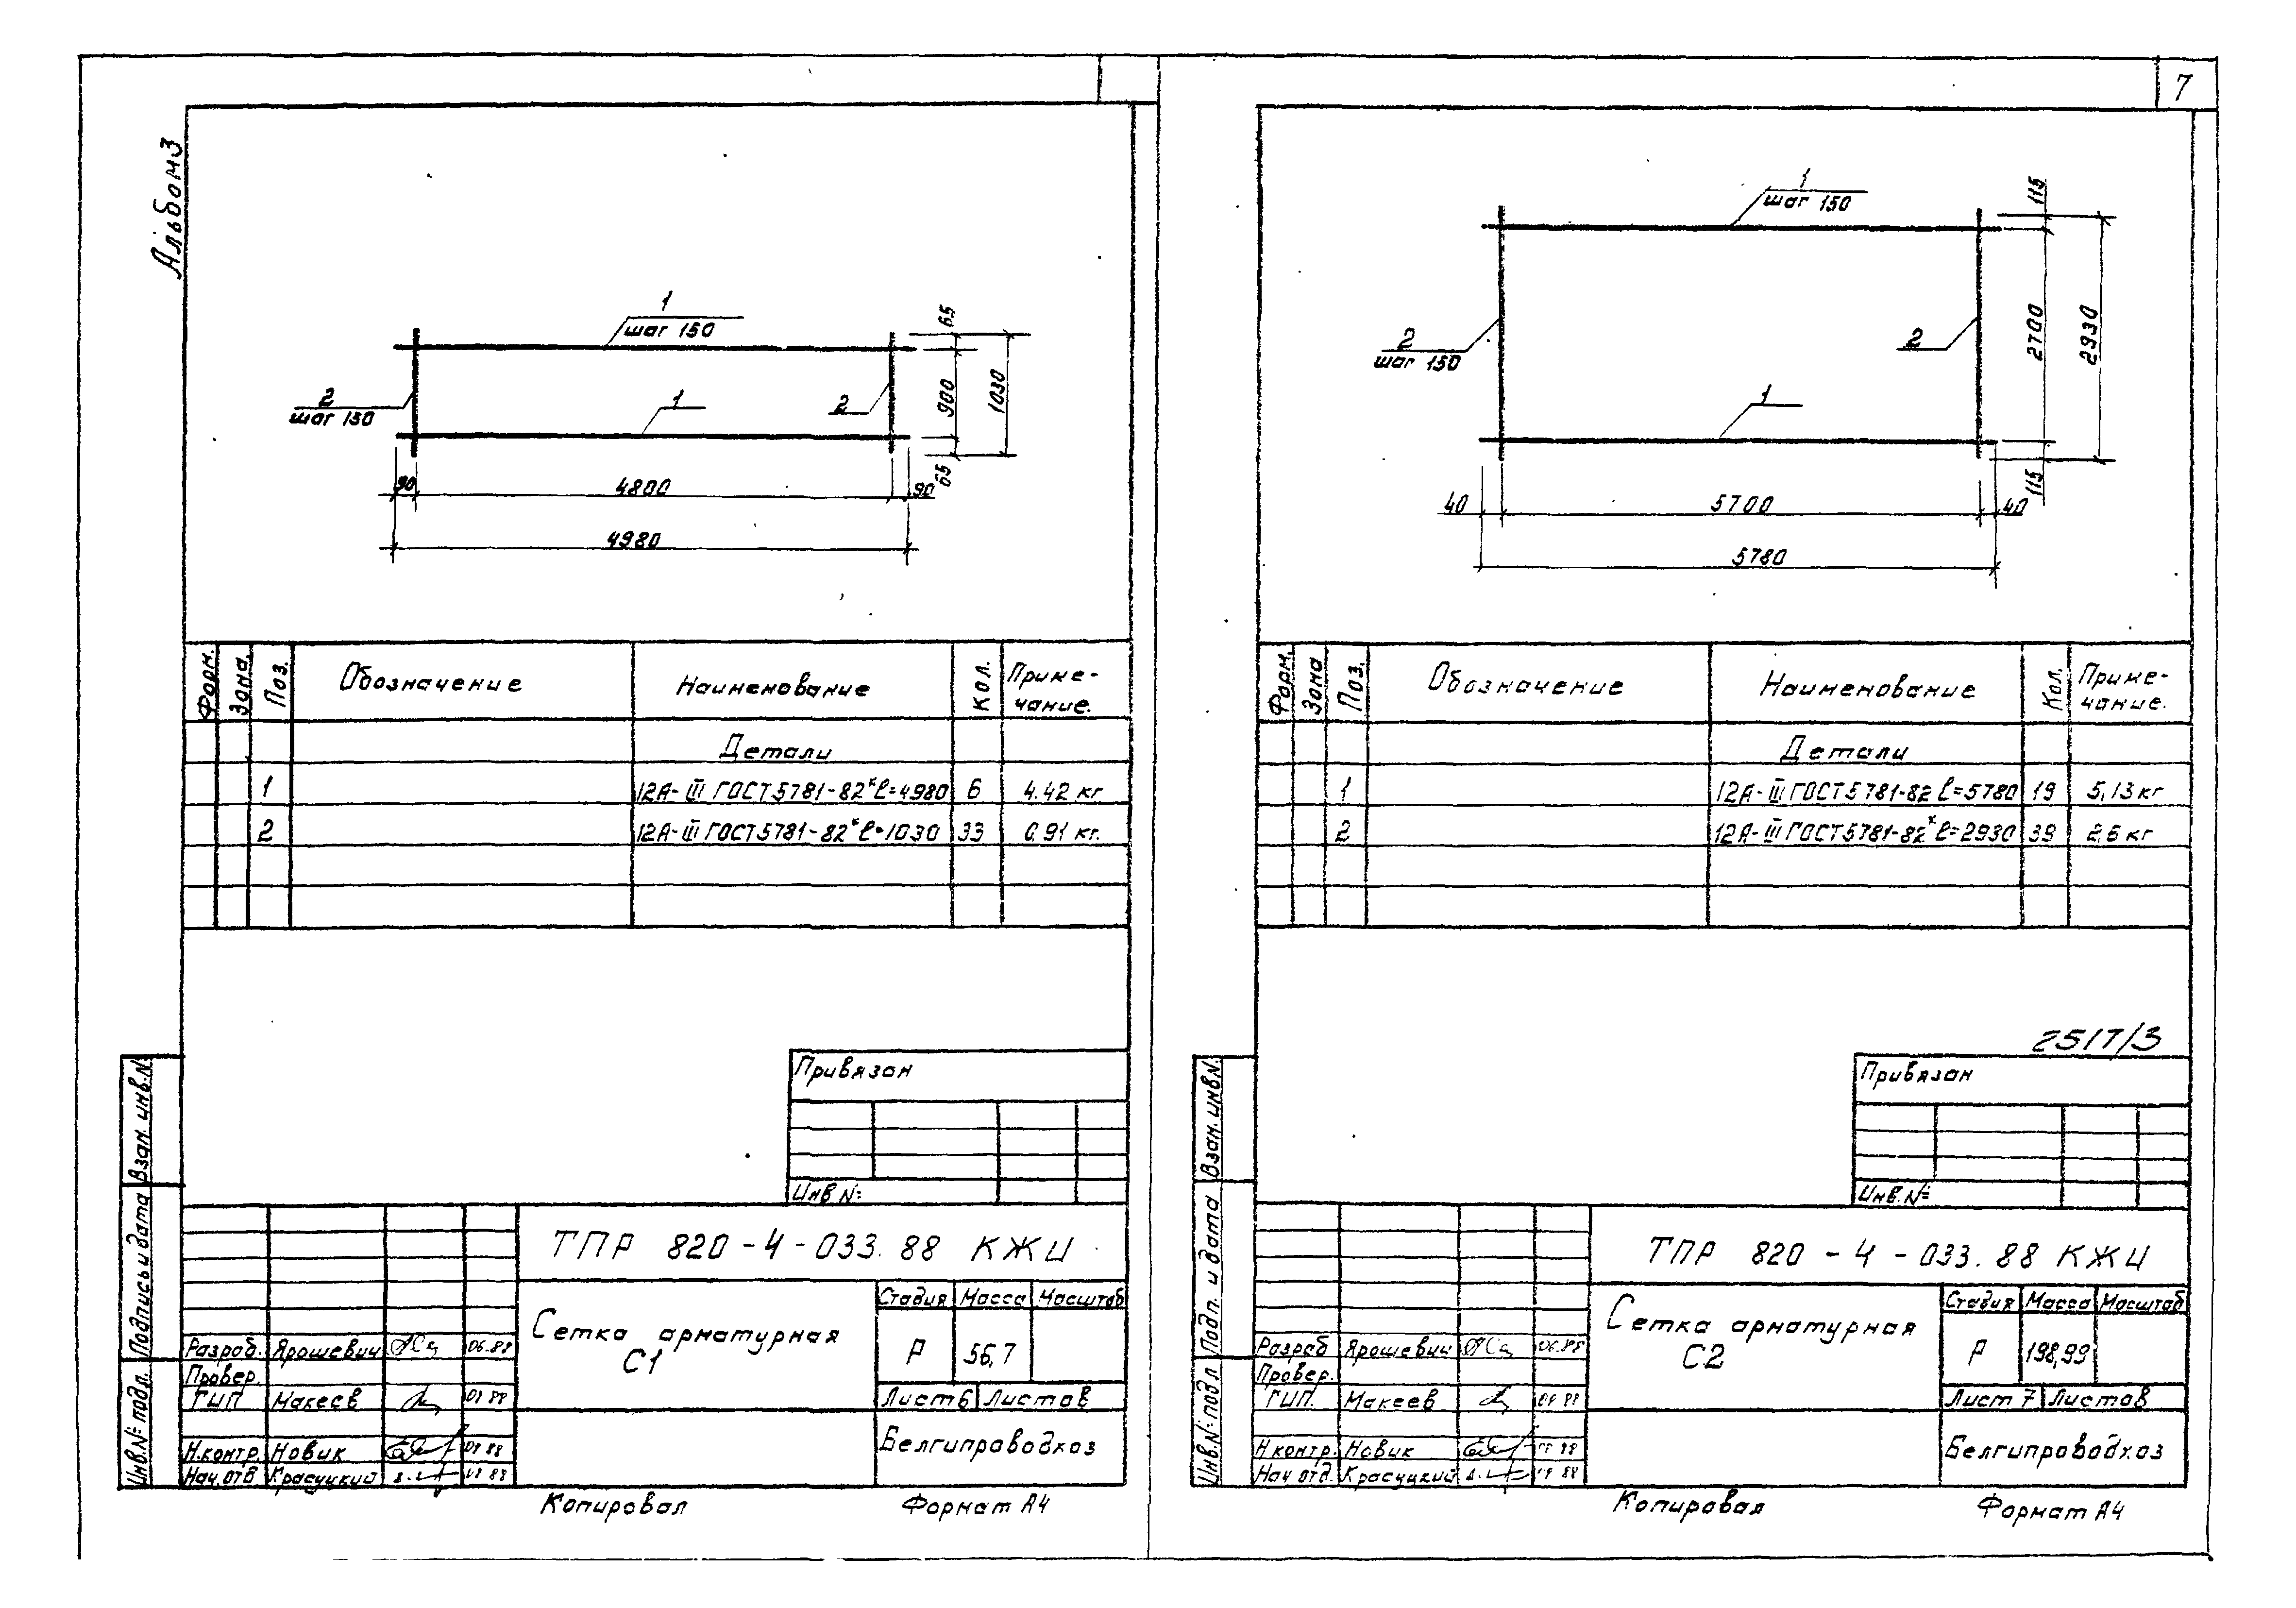 7
Альбом 3
1
шаг 150
2
шаг 150
1
2
65
900
1030
65
90
4800
90
4980
Форм.
Зона.
Поз.
Обозначение
Наименование
Кол.
Приме-
чание.
Детали
1 12А-III ГОСТ 5781-82* ℓ=4980 6 4.42 кг
2 12А-III ГОСТ 5781-82* ℓ=1030 33 0.91 кг.
Привязан
Инв №
Взам. инв. №
Подпись и дата
Инв. № подл.
ТПР 820-4-033.88 КЖИ
Сетка арматурная
С1
Стадия Масса Масштаб
Р 56,7
Лист 6 Листов
Белгипроводхоз
Разраб. Ярошевич 06.88
Провер.
ГИП Макеев 09 88
Н.контр. Новик 09 88
Нач.отд Красуцкий 09 88
Копировал
Формат А4
1
шаг 150
2
шаг 150
2
1
115
2700
2930
115
40
5700
40
5780
Форм.
Зона
Поз.
Обозначение
Наименование
Кол.
Приме-
чание.
Детали
1 12А-III ГОСТ 5781-82 ℓ=5780 19 5,13 кг
2 12А-III ГОСТ 5781-82* ℓ=2930 39 2,6 кг
2517/3
Привязан
Инв. №
Взам. инв №.
Подп. и дата
Инв. № подл
ТПР 820-4-033.88 КЖИ
Сетка арматурная
С2
Стадия Масса Масштаб
Р 198,99
Лист 7 Листов
Белгипроводхоз
Разраб Ярошевич 06.88
Провер.
ГИП. Макеев 09 88
Н.контр. Новик 09 88
Нач.отд. Красуцкий 09 88
Копировал
Формат А4